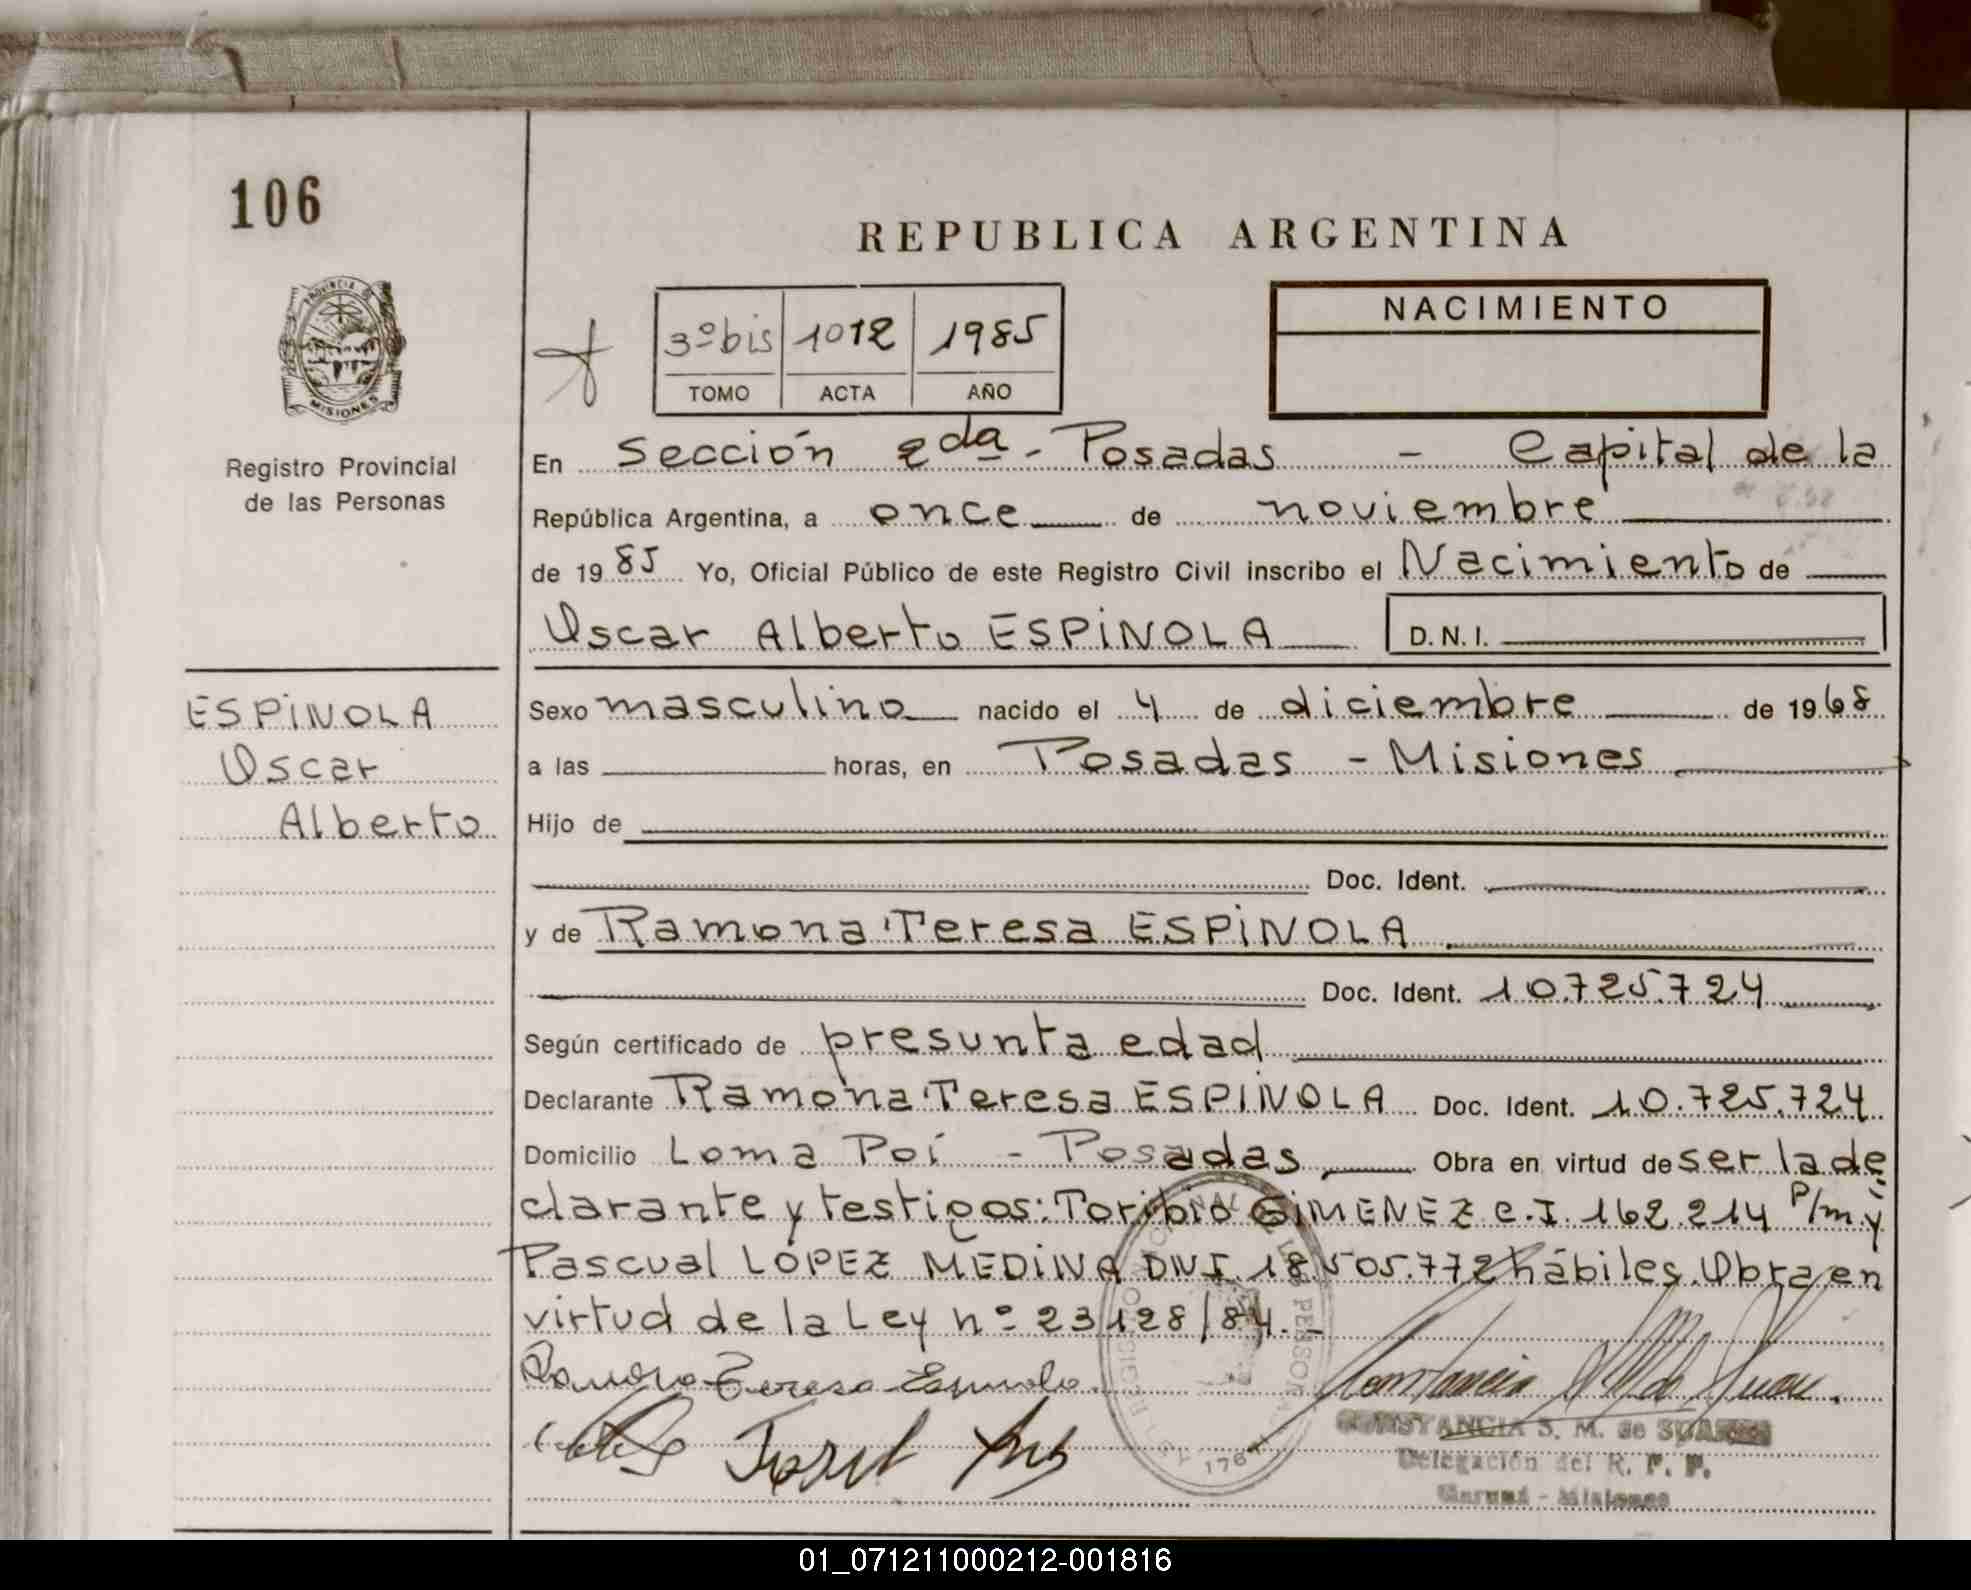 106
REPUBLICA ARGENTINA
PROVINCIA D
MISIONES
Registro Provincial
de las Personas
3º bis 1012 1985
TOMO ACTA AÑO
NACIMIENTO
En Sección 2da - Posadas - Capital de la
República Argentina, a once de noviembre
de 1985 Yo, Oficial Público de este Registro Civil inscribo el Nacimiento de
Oscar Alberto ESPINOLA D.N.I.
ESPINOLA
Oscar
Alberto
Sexo masculino nacido el 4 de diciembre de 1968
a las horas, en Posadas - Misiones
Hijo de
Doc. Ident.
y de Ramona Teresa ESPINOLA
Doc. Ident. 10.725.724
Según certificado de presunta edad
Declarante Ramona Teresa ESPINOLA Doc. Ident. 10.725.724
Domicilio Loma Poí - Posadas Obra en virtud de ser la de
clarante y testigos: Toribio GIMENEZ C.I. 162.214 P/m y
Pascual LÓPEZ MEDINA DNI 18.505.772 hábiles. Obra en
virtud de la Ley nº 23128/84.-
Ramona Teresa Espinola
CONSTANCIA S. M. de SUAREZ
Delegación del R. P. P.
Misiones
01_071211000212-001816